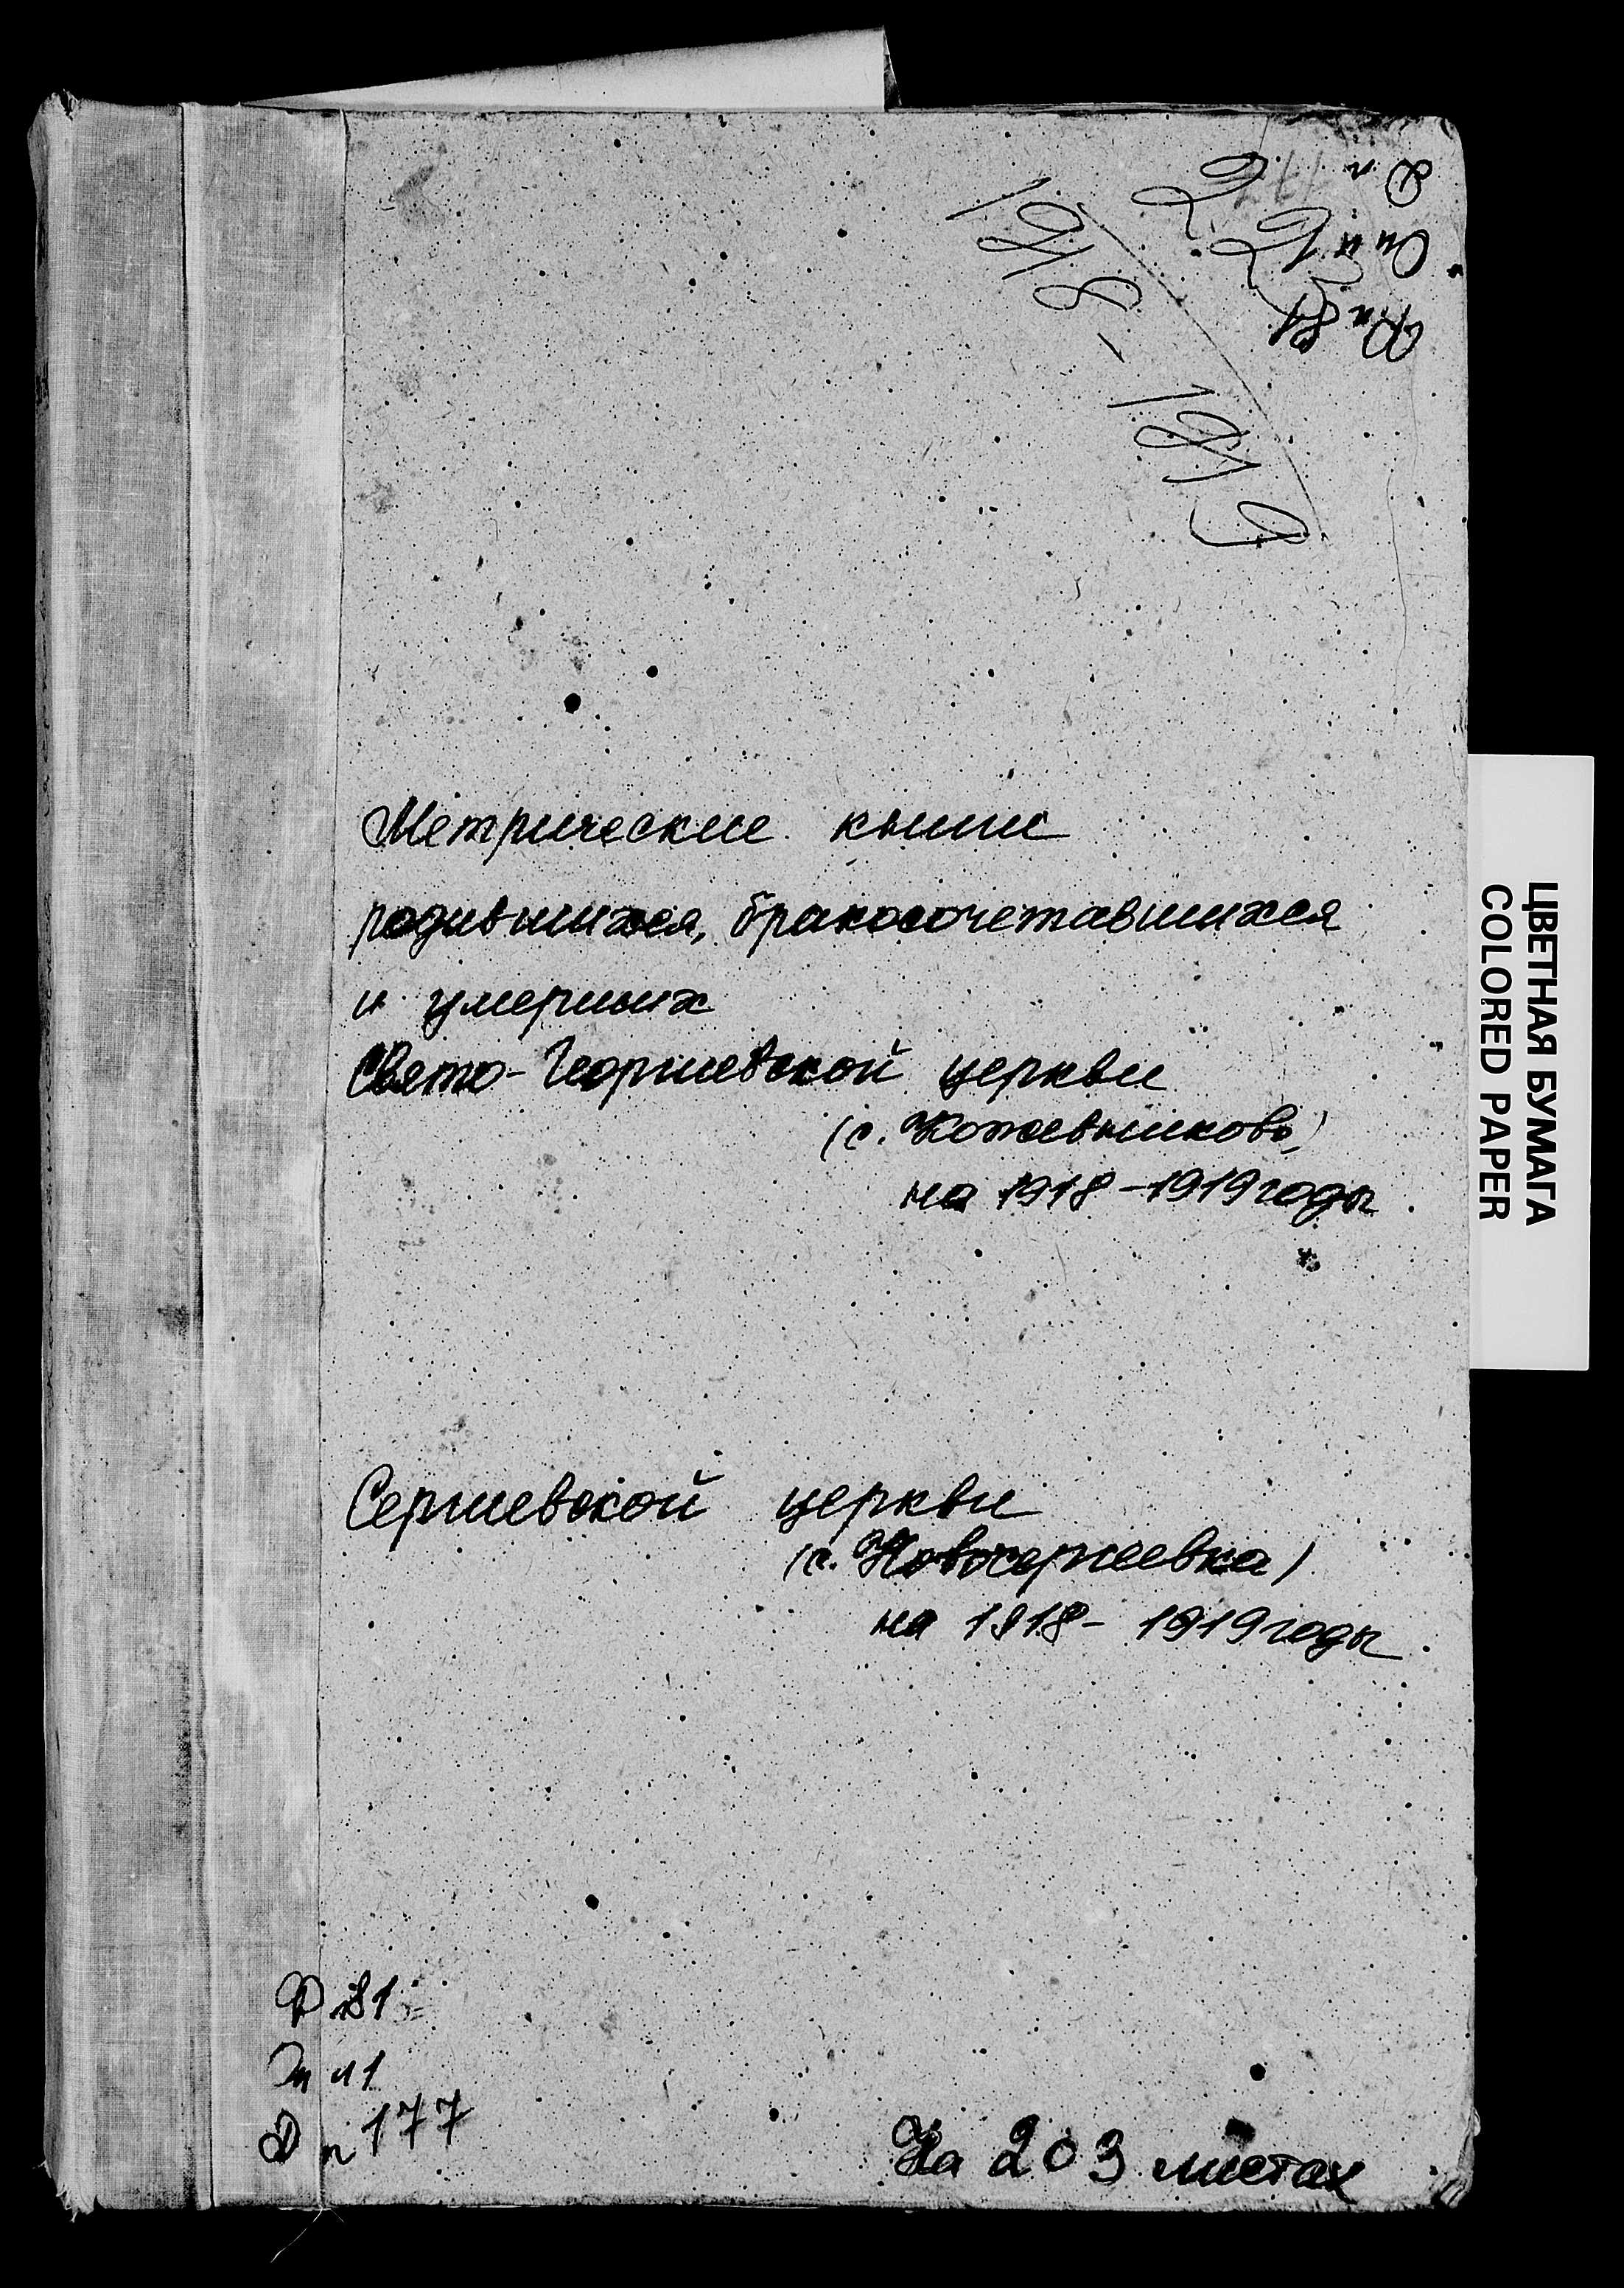 1918-1919
Метрические книги
родившихся, бракосочетавшихся
и умерших
Свято-Георгиевской церкви
(с. Кожевниково)
на 1918-1919 годы
Сергиевской церкви
(с. Новосергеевка)
на 1918-1919 годы
Ф n 81
Оп n 1
Д n 177
На 203 листах
ЦВЕТНАЯ БУМАГА
COLORED PAPER